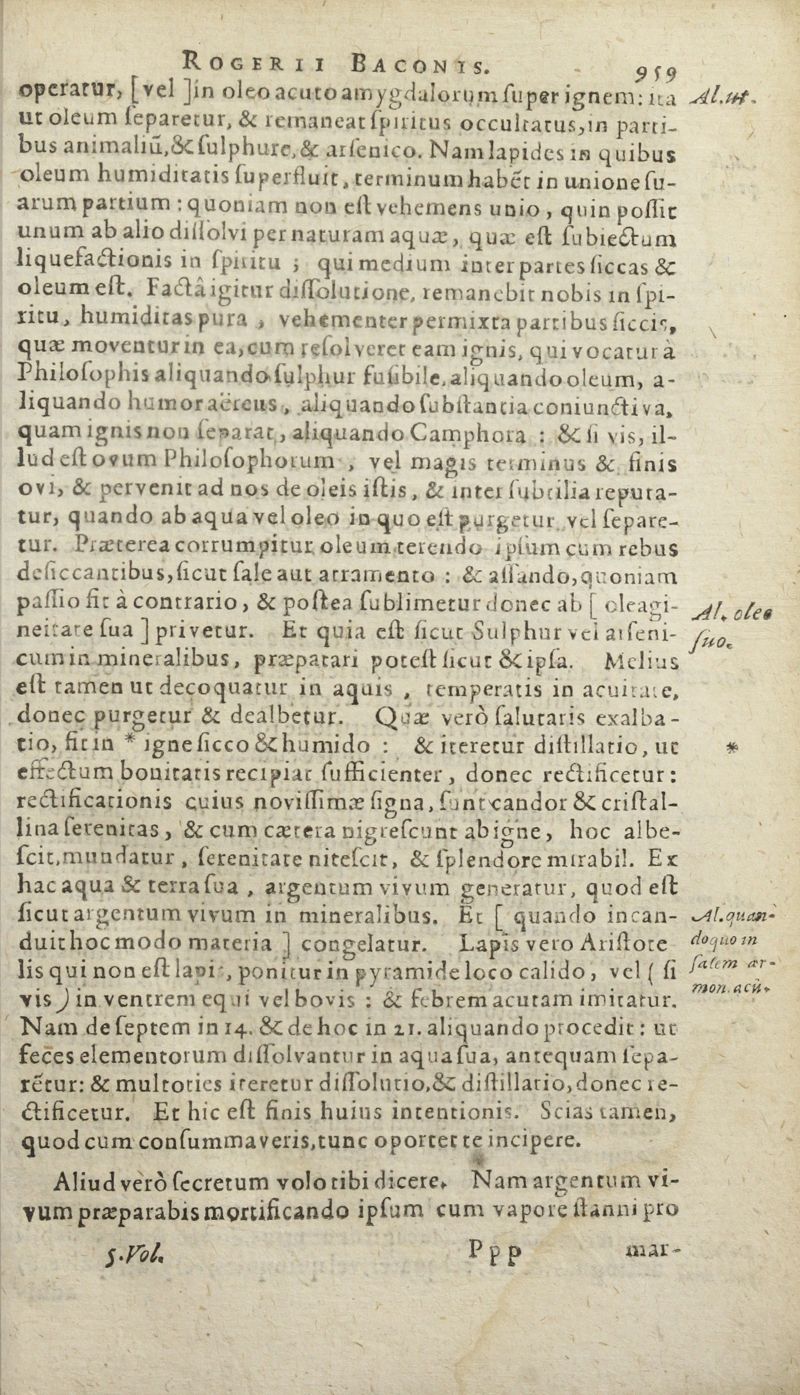 ROGERII BACONIS. 959
operatur, [vel ]in oleo acuto amygdalorum super ignem: ita Al. ut.
ut oleum separetur, & remaneat spiritus occultatus, in parti-
bus animaliũ, & sulphure, & arsenico. Nam lapides in quibus
oleum humiditatis superfluit, terminum habẽt in unione su-
arum partium : quoniam non est vehemens unio, quin possit
unum ab alio dissolvi per naturam aquæ, quæ est subiectum
liquefactionis in spiritu ; qui medium inter partes siccas &
oleum est. Factâ igitur dissolutione, remanebit nobis in spi-
ritu, humiditas pura, vehementer permixta partibus siccis,
quæ moventur in ea, cum resolveret eam ignis, qui vocatur à
Philosophis aliquando sulphur fusibile, aliquando oleum, a-
liquando humor aëreus, aliquando substantia coniunctiva,
quam ignis non separat, aliquando Camphora : & si vis, il-
lud est ovum Philosophorum, vel magis terminus & finis
ovi, & pervenit ad nos de oleis istis, & inter subtilia reputa-
tur, quando ab aqua vel oleo in quo est purgetur, vel separe-
tur. Præterea corrumpitur oleum terendo ipsum cum rebus
desiccantibus, sicut sale aut atramento : & assando, quoniam
passio fit à contrario, & postea sublimetur donec ab [ oleagi- Al. oleo
neitate sua ] privetur. Et quia est sicut Sulphur vel arseni- suo.
cum in mineralibus, præparari potest sicut & ipsa. Melius
est tamen ut decoquatur in aquis, temperatis in acuitate,
donec purgetur & dealbetur. Quæ verò salutaris exalba-
tio, fit in * igne sicco & humido : & iteretur distillatio, ut *
effectum bonitatis recipiat sufficienter, donec rectificetur:
rectificationis cuius novissimæ signa, sunt candor & cristal-
lina serenitas, & cum cætera nigrescunt ab igne, hoc albe-
scit, mundatur, serenitate nitescit, & splendore mirabil. Ex
hac aqua & terra sua, argentum vivum generatur, quod est
sicut argentum vivum in mineralibus. Et [ quando incan- Al. quan-
duit hoc modo materia ] congelatur. Lapis vero Aristote do quo in
lis qui non est lapis, ponitur in pyramide loco calido, vel ( si salem ar-
vis ) in ventrem equi vel bovis : & febrem acutam imitatur. mon. acũ.
Nam de septem in 14. & de hoc in 21. aliquando procedit : ut
feces elementorum dissolvantur in aqua sua, antequam sepa-
rẽtur: & multoties iteretur dissolutio, & distillatio, donec re-
ctificetur. Et hic est finis huius intentionis. Scias tamen,
quod cum consummaveris, tunc oportet te incipere.
Aliud verò secretum volo tibi dicere. Nam argentum vi-
vum præparabis mortificando ipsum cum vapore stanni pro
5. Vol. Ppp mar-